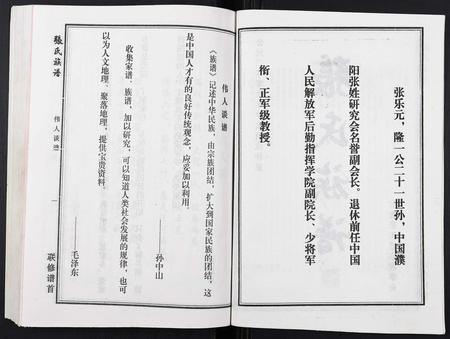 张乐元，隆一公二十一世孙，中国濮
阳张姓研究会名誉副会长。退休前任中国
人民解放军后勤指挥学院副院长、少将军
衔、正军级教授。
伟人谈谱
《族谱》记述中华民族，由宗族团结，扩大到国家民族的团结，这
是中国人才有的良好传统观念，应妥加以利用。
——孙中山
收集家谱、族谱，加以研究，可以知道人类社会发展的规律，也可
以为人文地理、聚落地理，提供宝贵资料。
——毛泽东
張氏族谱
伟人谈谱
一
联修谱首